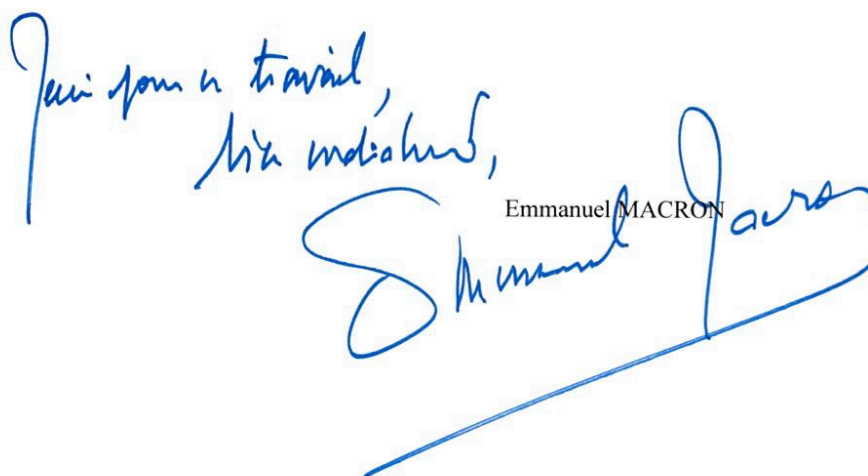 Merci pour ce travail,
bien cordialement,
Emmanuel MACRON
Emmanuel Macron